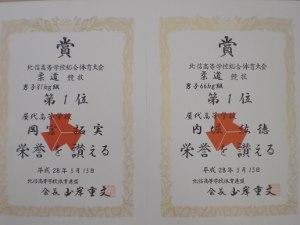 賞
北信高等学校総合体育大会
柔道 競技
男子81kg級
第1位
屋代高等学校
岡 拓実
栄誉を讃える
平成28年5月13日
北信高等学校体育連盟
会長 山岸重文
賞
北信高等学校総合体育大会
柔道 競技
男子66kg級
第1位
屋代高等学校
内 佑徳
栄誉を讃える
平成28年5月13日
北信高等学校体育連盟
会長 山岸重文